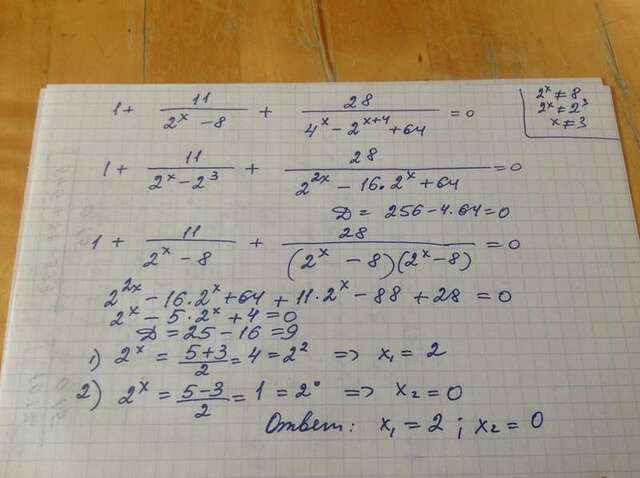 1 + 11/(2^x - 8) + 28/(4^x - 2^(x+4) + 64) = 0
2^x ≠ 8
2^x ≠ 2^3
x ≠ 3
1 + 11/(2^x - 2^3) + 28/(2^(2x) - 16·2^x + 64) = 0
D = 256 - 4·64 = 0
1 + 11/(2^x - 8) + 28/((2^x - 8)(2^x - 8)) = 0
2^(2x) - 16·2^x + 64 + 11·2^x - 88 + 28 = 0
2^x - 5·2^x + 4 = 0
D = 25 - 16 = 9
1) 2^x = (5+3)/2 = 4 = 2^2 => x₁ = 2
2) 2^x = (5-3)/2 = 1 = 2^0 => x₂ = 0
Ответ: x₁ = 2 ; x₂ = 0